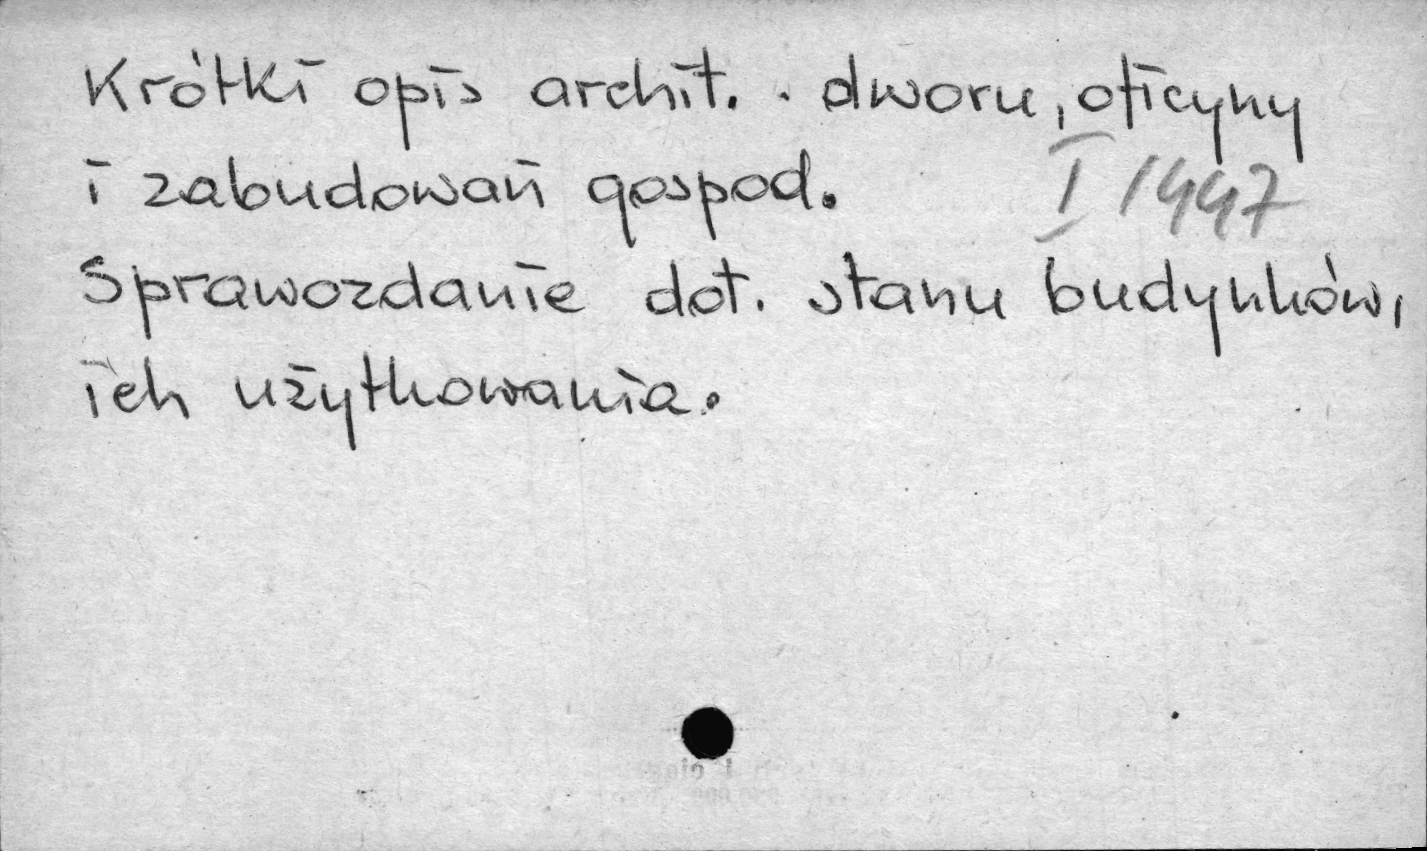 Krótki opis archit. dworu, oficyny
i zabudowań gospod.
I 1447
Sprawozdanie dot. stanu budynków,
ich użytkowania.